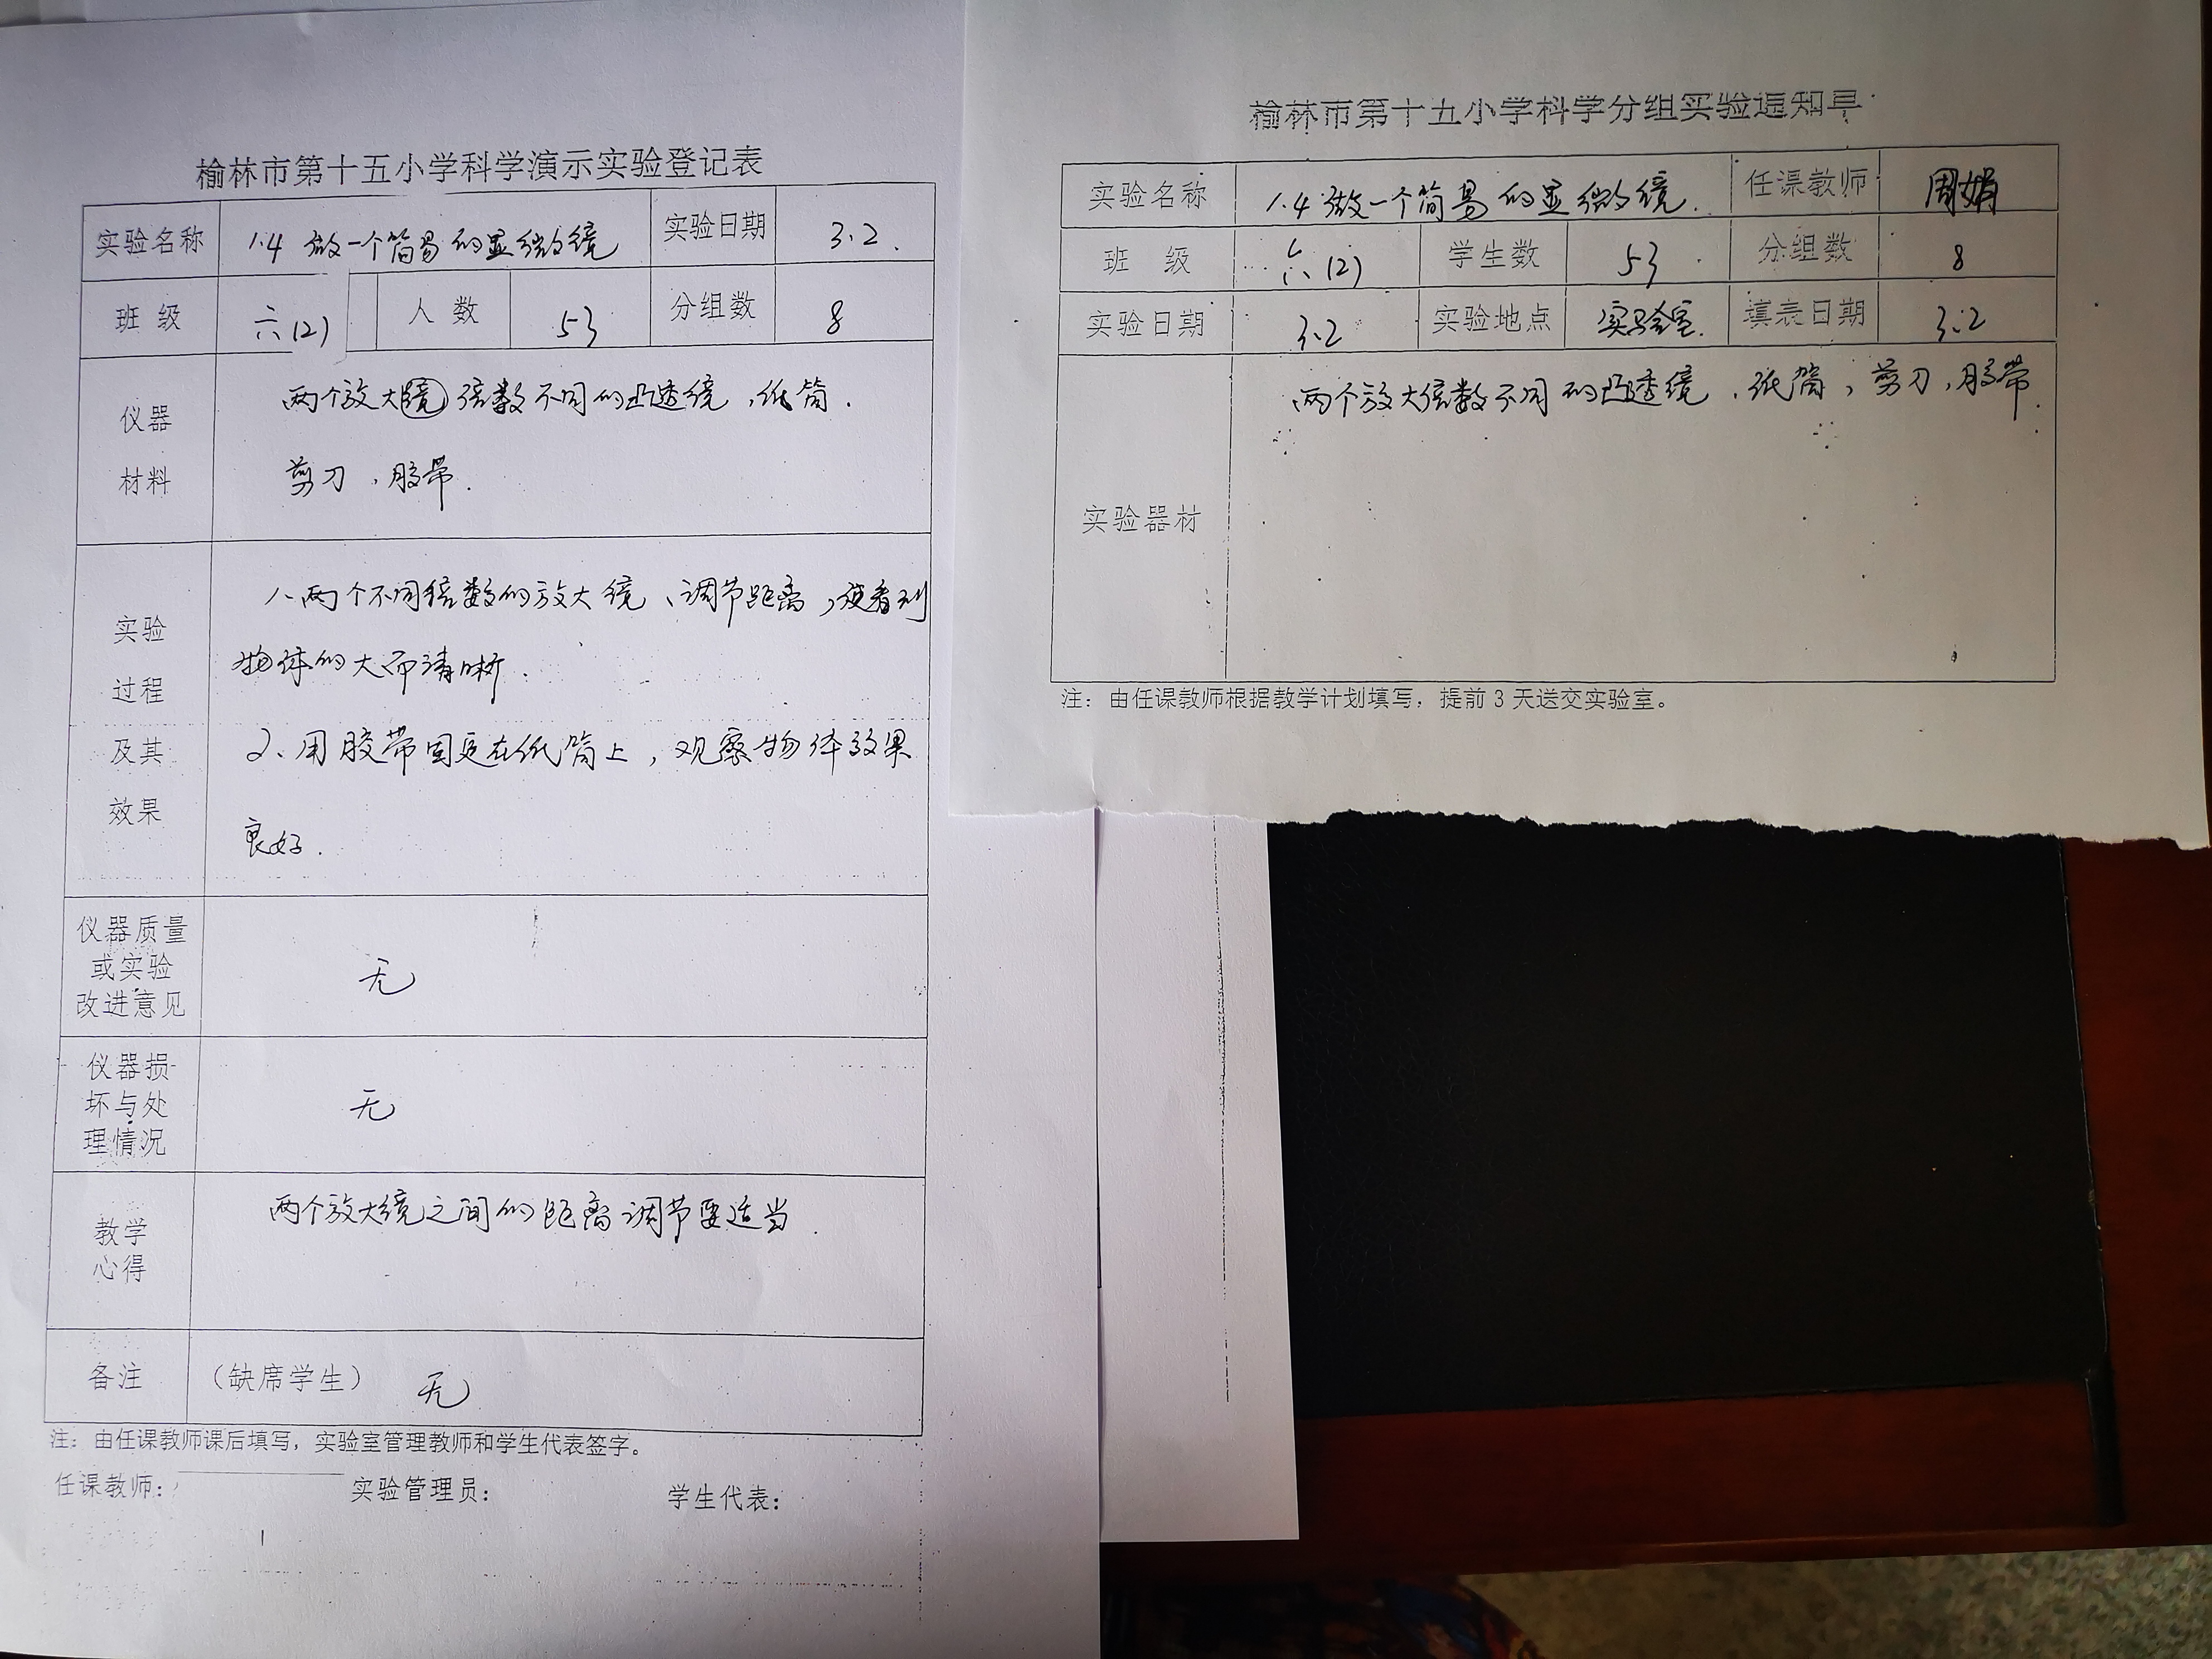 榆林市第十五小学科学演示实验登记表
实验名称 1.4 做一个简易的显微镜 实验日期 3.2.
班 级 六(2) 人 数 53 分组数 8
仪器
材料
两个放大镜倍数不同的凸透镜,纸筒.
剪刀,胶带.
实验
过程
及其
效果
1、两个不同倍数的放大镜、调节距离,使看到
物体的大而清晰.
2、用胶带固定在纸筒上,观察物体效果
良好.
仪器质量
或实验
改进意见
无
仪器损
坏与处
理情况
无
教学
心得
两个放大镜之间的距离调节要适当.
备注 (缺席学生) 无
注:由任课教师课后填写,实验室管理教师和学生代表签字。
任课教师: 实验管理员: 学生代表:
榆林市第十五小学科学分组实验通知单
实验名称 1.4 做一个简易的显微镜. 任课教师 周娟
班 级 六(2) 学生数 53 分组数 8
实验日期 3.2 实验地点 实验室. 填表日期 3.2
实验器材
两个放大倍数不同的凸透镜.纸筒,剪刀,胶带.
注:由任课教师根据教学计划填写,提前3天送交实验室。